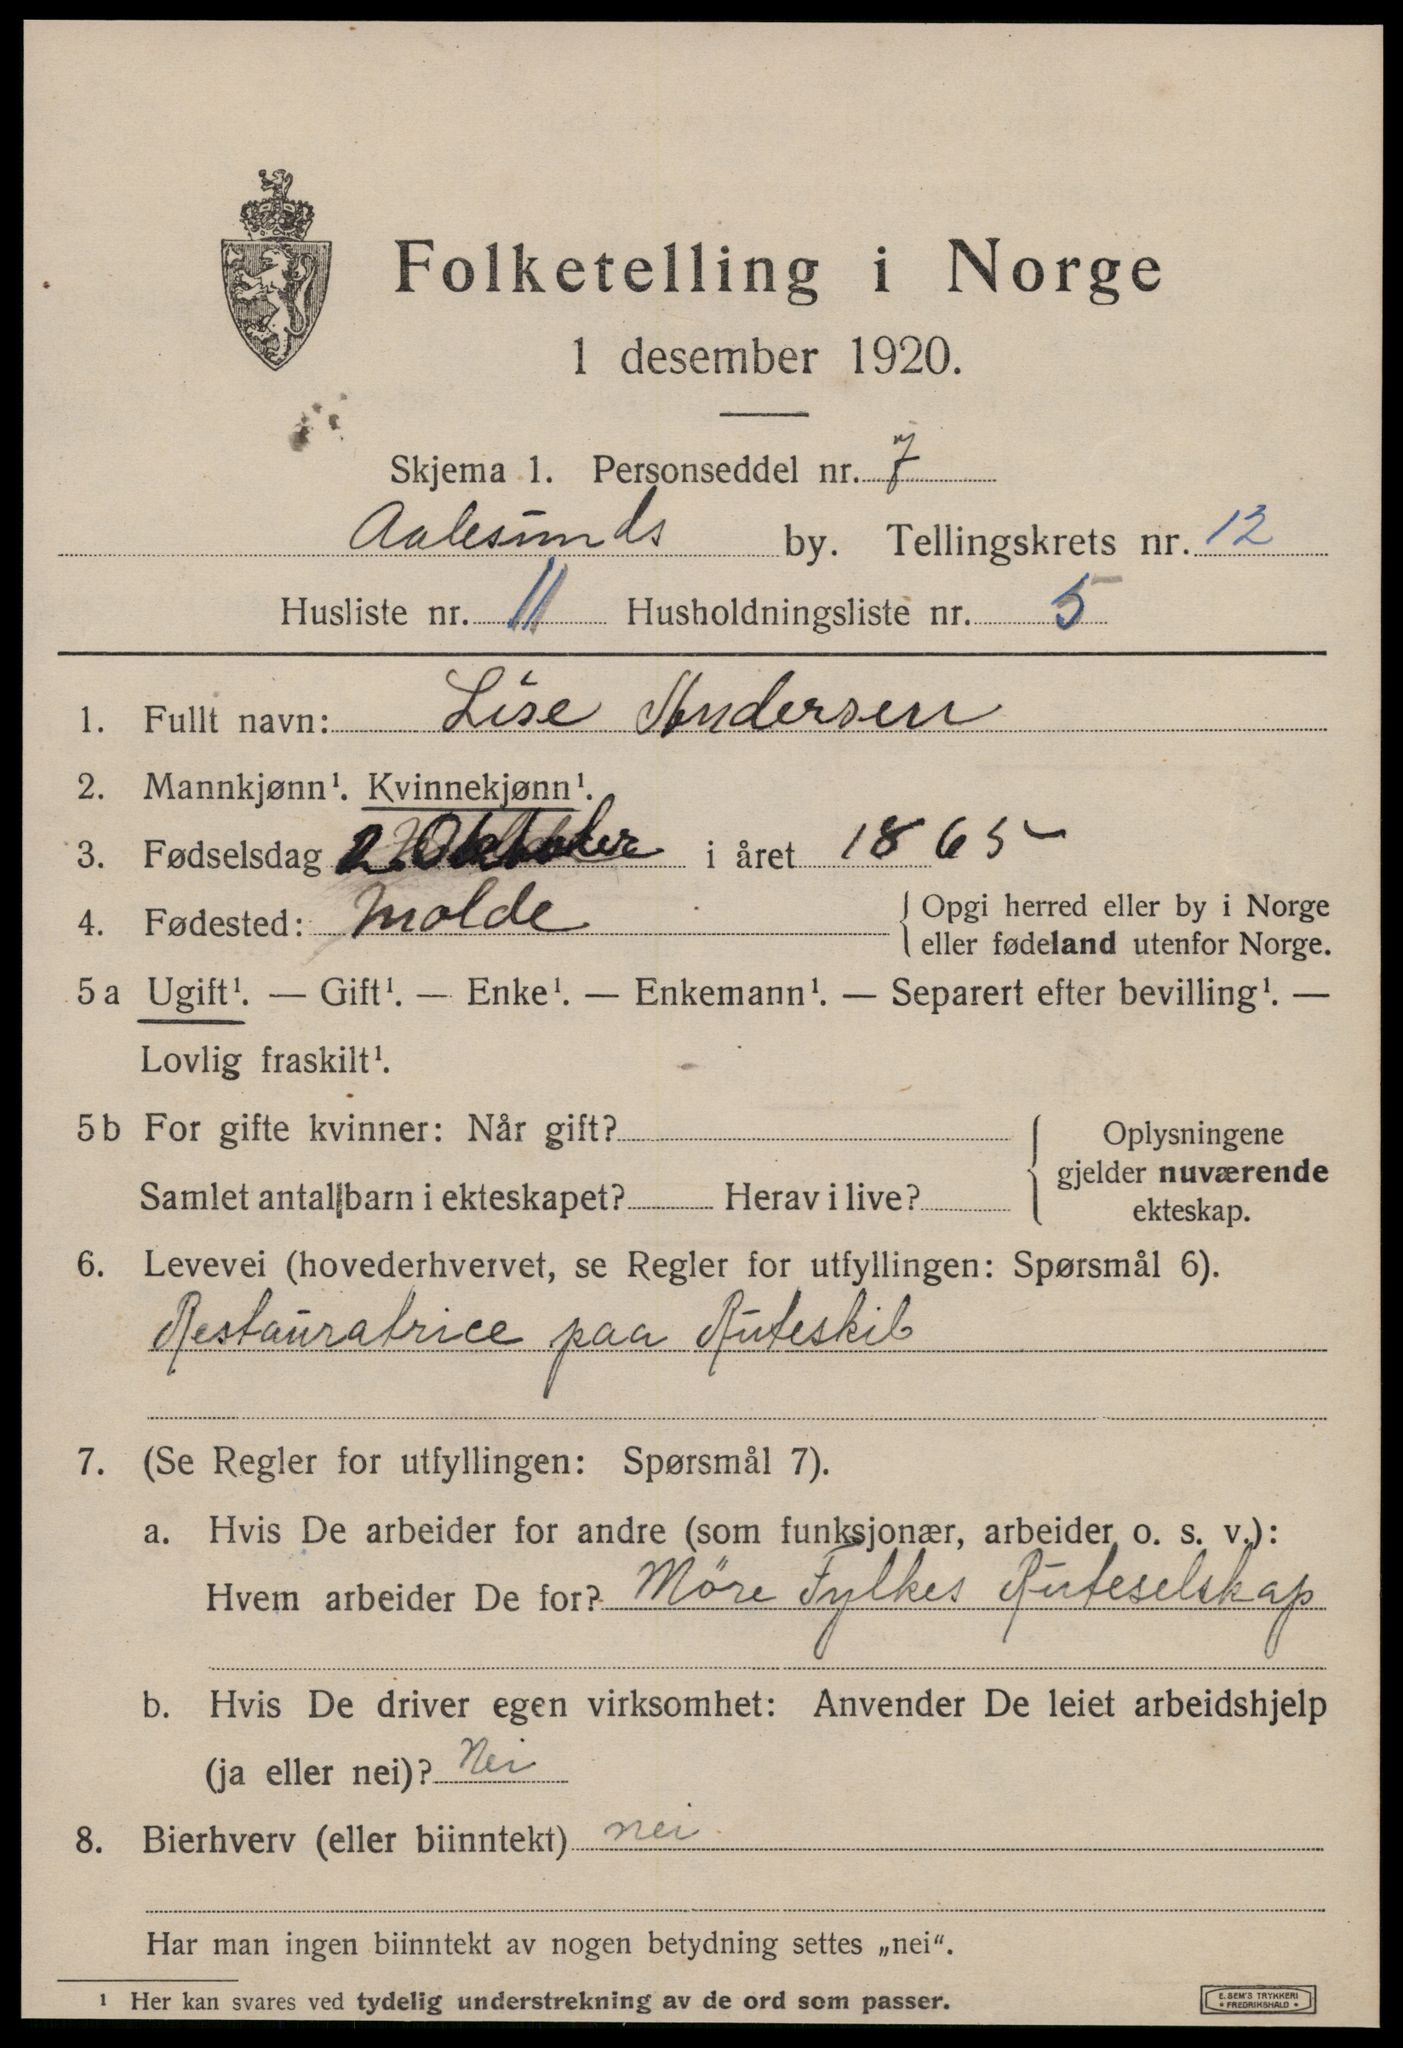 Folketelling i Norge
1 desember 1920.
Skjema 1. Personseddel nr. 7
Aalesunds by. Tellingskrets nr. 12
Husliste nr. 11 Husholdningsliste nr. 5
1. Fullt navn: Lise Andersen
2. Mannkjønn¹. Kvinnekjønn¹.
3. Fødselsdag 2. Oktober i året 1865
4. Fødested: Molde { Opgi herred eller by i Norge
eller fødeland utenfor Norge.
5 a Ugift¹. — Gift¹. — Enke¹. — Enkemann¹. — Separert efter bevilling¹. —
Lovlig fraskilt¹.
5 b For gifte kvinner: Når gift?
Samlet antall barn i ekteskapet? Herav i live?
Oplysningene
gjelder nuværende
ekteskap.
6. Levevei (hovederhvervet, se Regler for utfyllingen: Spørsmål 6).
Restauratrice paa Ruteskib
7. (Se Regler for utfyllingen: Spørsmål 7).
a. Hvis De arbeider for andre (som funksjonær, arbeider o. s. v.):
Hvem arbeider De for? Möre Fylkes Ruteselskap
b. Hvis De driver egen virksomhet: Anvender De leiet arbeidshjelp
(ja eller nei)? Nei
8. Bierhverv (eller biinntekt) nei
Har man ingen biinntekt av nogen betydning settes „nei“.
¹ Her kan svares ved tydelig understrekning av de ord som passer.
E. SEM'S TRYKKERI
• FREDRIKSHALD •